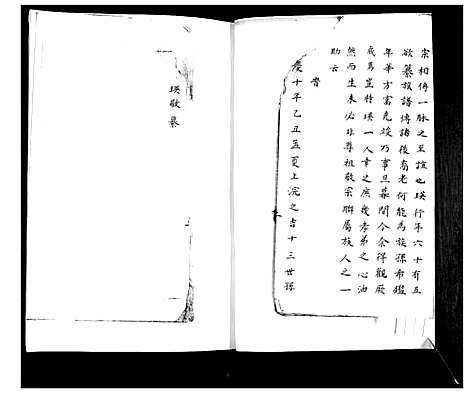 宗相傳一脉之至誼也瑛行年六十有五
欲纂族譜傳諸後裔老何能為族孫布鑑
年華方富克竣乃事旦暮間令余得觀厥
成焉豈特瑛一人幸之庶幾孝弟之心油
然而生未必非尊祖敬宗聯屬族人之一
助云
皆
慶十年乙丑孟夏上浣之吉十三世孫
瑛敬纂